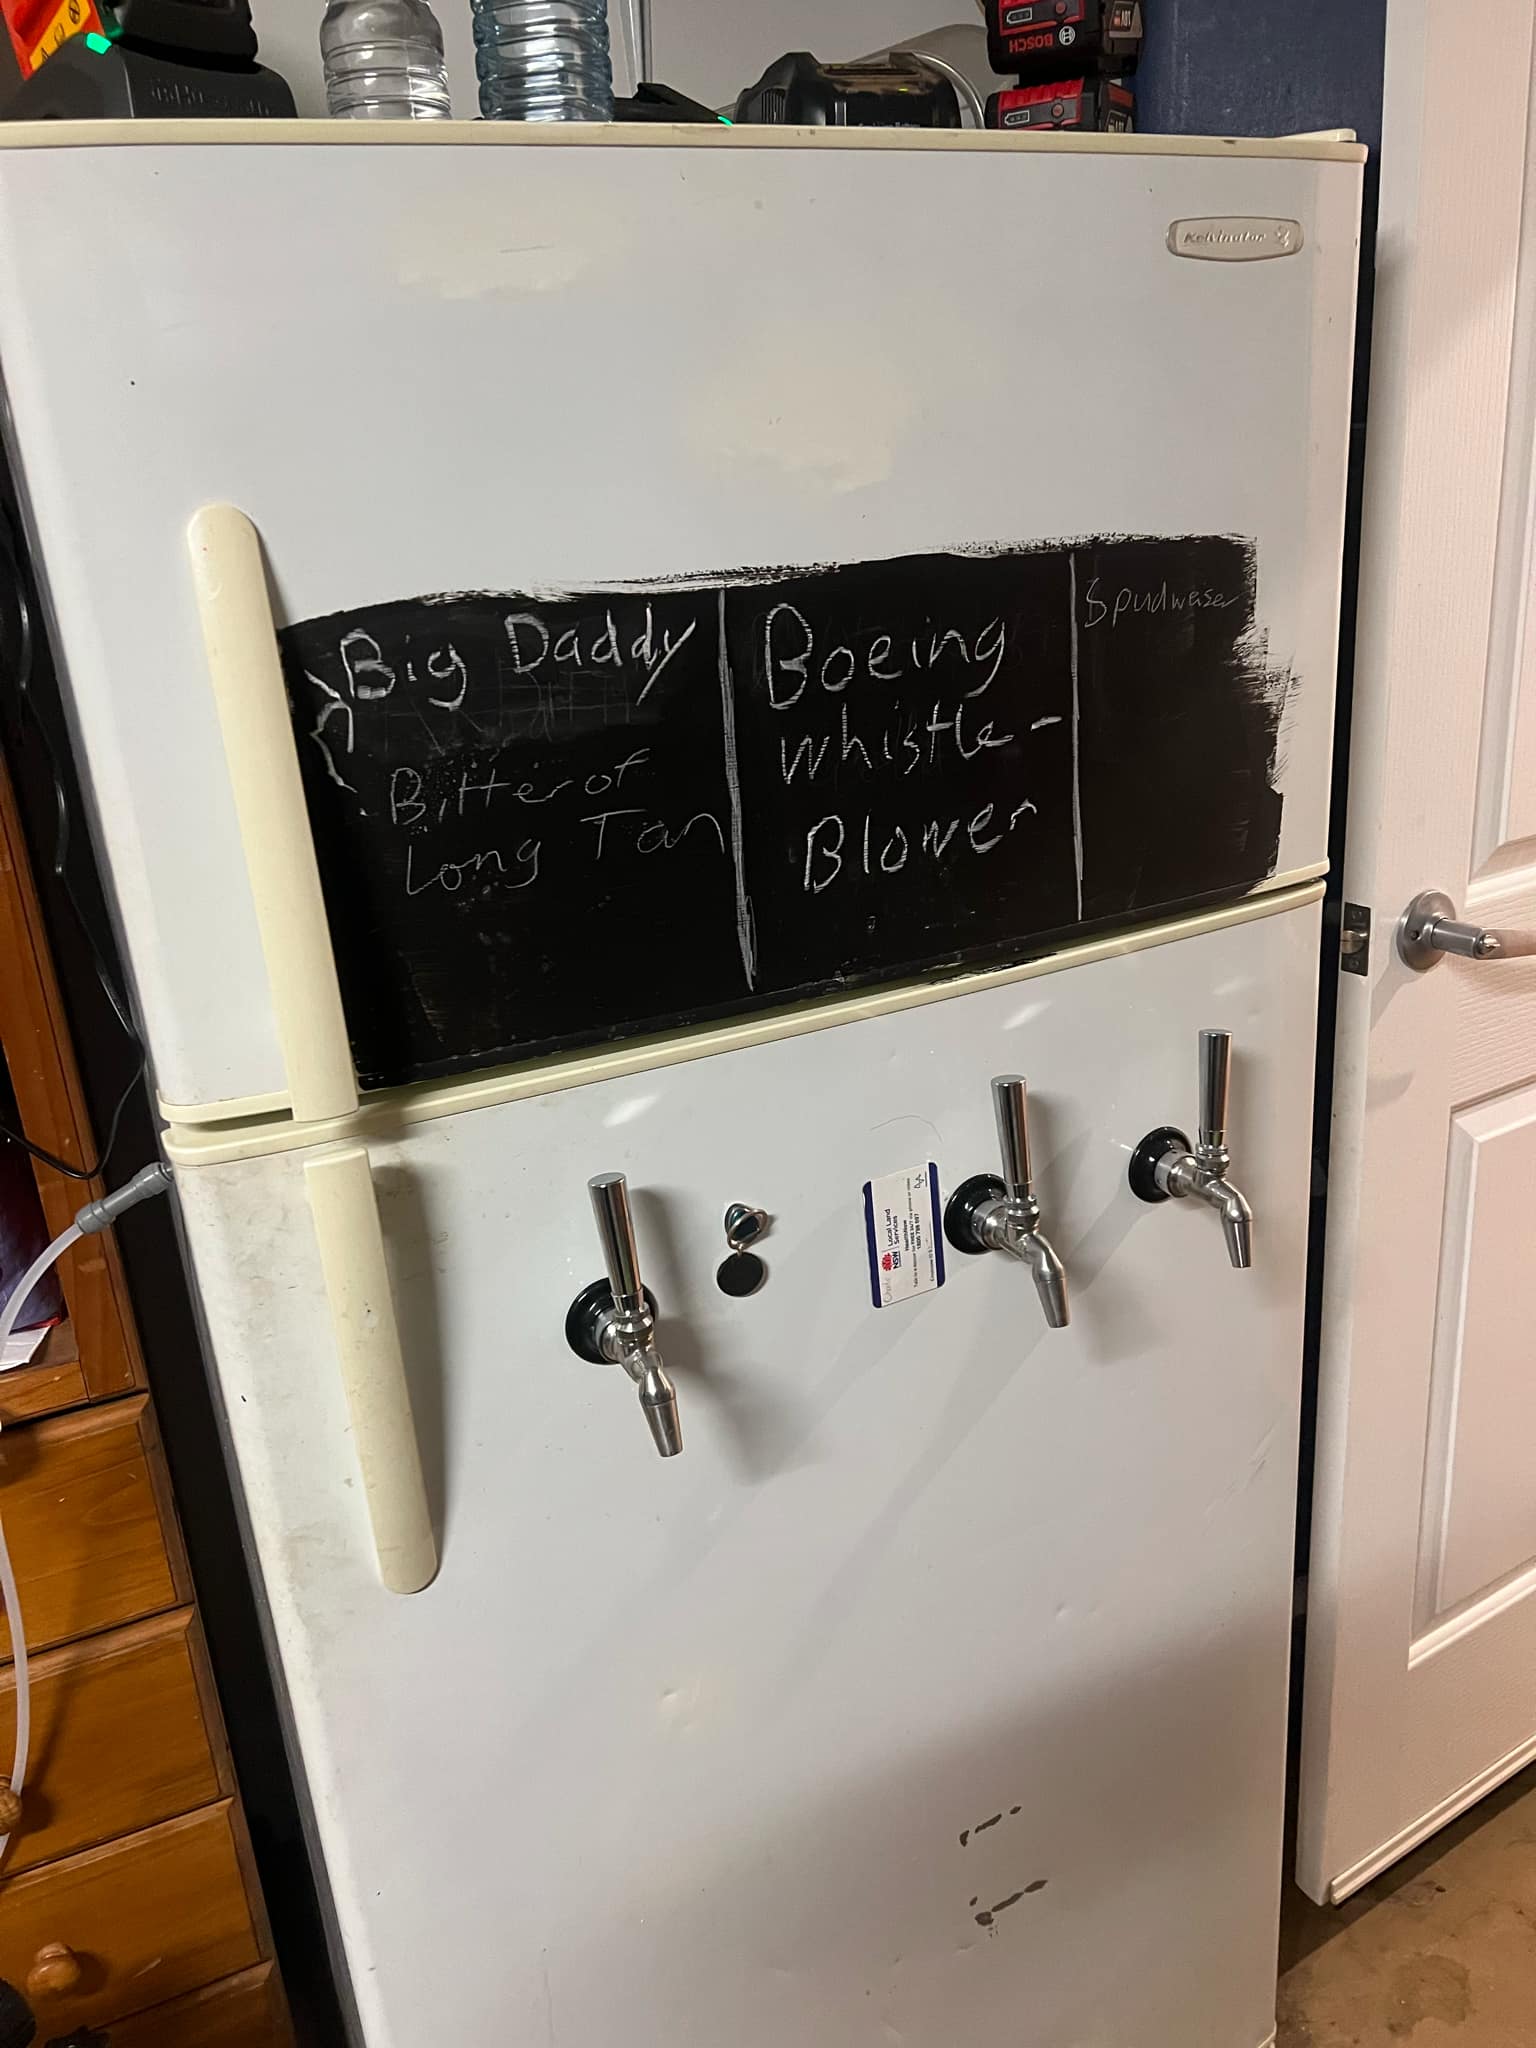 BOSCH
Kelvinator
Big Daddy
Bitter of
Long Tan
Boeing
whistle-
Blower
Spudweiser
Local Land
Services
NSW